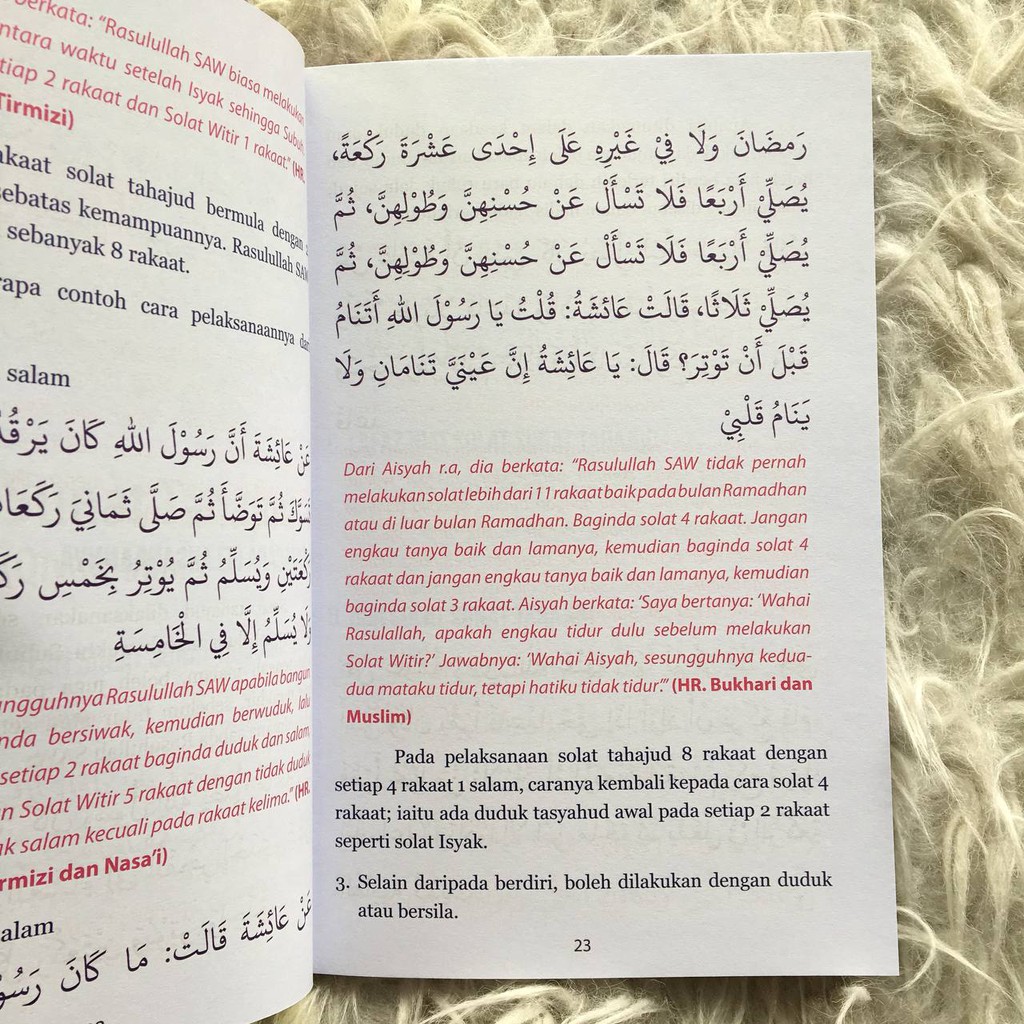 berkata: “Rasulullah SAW biasa melakukan
ntara waktu setelah Isyak sehingga Subuh,
tiap 2 rakaat dan Solat Witir 1 rakaat.” (HR.
Tirmizi)
akaat solat tahajud bermula dengan
sebatas kemampuannya. Rasulullah SAW
sebanyak 8 rakaat.
rapa contoh cara pelaksanaannya dar
salam
عَنْ عَائِشَةَ أَنَّ رَسُوْلَ اللهِ كَانَ يَرْقُدُ
تَسَوَّكَ ثُمَّ تَوَضَّأَ ثُمَّ صَلَّى ثَمَانِيَ رَكَعَاتٍ
رَكْعَتَيْنِ وَيُسَلِّمُ ثُمَّ يُوْتِرُ بِخَمْسِ
وَلَا يُسَلِّمُ إِلَّا فِي الْخَامِسَةِ
ungguhnya Rasulullah SAW apabila bangun
nda bersiwak, kemudian berwuduk, lalu
setiap 2 rakaat baginda duduk dan salam,
an Solat Witir 5 rakaat dengan tidak duduk
ak salam kecuali pada rakaat kelima.” (HR.
rmizi dan Nasa’i)
salam
عَنْ عَائِشَةَ قَالَتْ: مَا كَانَ رَسُوْ
رَمَضَانَ وَلَا فِيْ غَيْرِهِ عَلَى إِحْدَى عَشْرَةَ رَكْعَةً،
يُصَلِّيْ أَرْبَعًا فَلَا تَسْأَلْ عَنْ حُسْنِهِنَّ وَطُوْلِهِنَّ، ثُمَّ
يُصَلِّيْ أَرْبَعًا فَلَا تَسْأَلْ عَنْ حُسْنِهِنَّ وَطُوْلِهِنَّ، ثُمَّ
يُصَلِّيْ ثَلَاثًا، قَالَتْ عَائِشَةُ: قُلْتُ يَا رَسُوْلَ اللهِ أَتَنَامُ
قَبْلَ أَنْ تَوْتِرَ؟ قَالَ: يَا عَائِشَةُ إِنَّ عَيْنَيَّ تَنَامَانِ وَلَا
يَنَامُ قَلْبِيْ
Dari Aisyah r.a, dia berkata: “Rasulullah SAW tidak pernah
melakukan solat lebih dari 11 rakaat baik pada bulan Ramadhan
atau di luar bulan Ramadhan. Baginda solat 4 rakaat. Jangan
engkau tanya baik dan lamanya, kemudian baginda solat 4
rakaat dan jangan engkau tanya baik dan lamanya, kemudian
baginda solat 3 rakaat. Aisyah berkata: ‘Saya bertanya: ‘Wahai
Rasulallah, apakah engkau tidur dulu sebelum melakukan
Solat Witir?’ Jawabnya: ‘Wahai Aisyah, sesungguhnya kedua-
dua mataku tidur, tetapi hatiku tidak tidur.’” (HR. Bukhari dan
Muslim)
Pada pelaksanaan solat tahajud 8 rakaat dengan
setiap 4 rakaat 1 salam, caranya kembali kepada cara solat 4
rakaat; iaitu ada duduk tasyahud awal pada setiap 2 rakaat
seperti solat Isyak.
3. Selain daripada berdiri, boleh dilakukan dengan duduk
atau bersila.
23